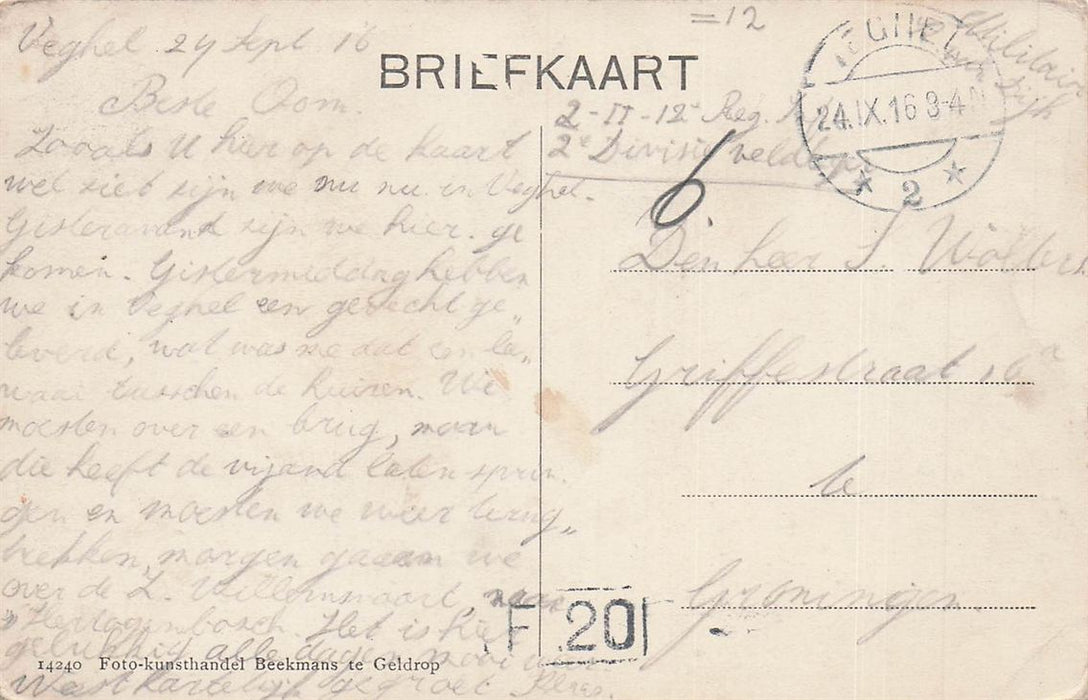 =12
Veghel 24 Sept 16
BRIEFKAART
Militair
VEGHEL
24.IX.16 3-4N
2
Beste Oom.
2-II-12e Reg. Inf
2e Divisie veldleger
Zooals U hier op de kaart
wel ziet zijn we nu nu in Veghel.
Gisteravond zijn we hier ge
komen. Gistermiddag hebben
we in Veghel een gevecht ge„
leverd, wat was me dat een la„
waai tusschen de huizen. We
moesten over een brug, maar
die heeft de vijand laten sprin.
gen en moesten we weer terug„
trekken, morgen gaan we
over de Z. Willemsvaart, naar
's Hertogenbosch. Het is hier
gelukkig alle dagen mooi weer
Wees hartelijk gegroet
6.
Den heer S. Wolters
Griffestraat 16a
te
Groningen.
F 20
14240 Foto-kunsthandel Beekmans te Geldrop